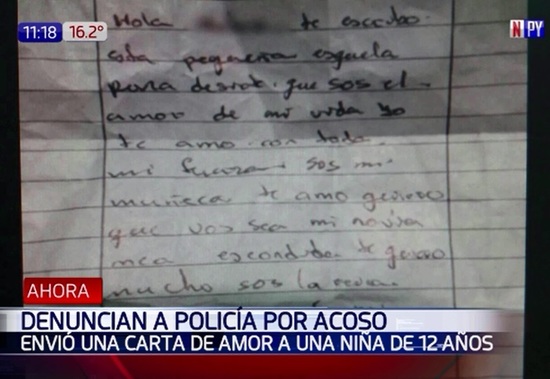 11:18 16.2°
NPY
Hola te escribo
esta pequeña esquela
para desirte que sos el
amor de mi vida yo
te amo con toda
mi fuerza sos mi
muñeca te amo quiero
que vos sea mi novia
mea escondida te quiero
mucho sos la reina
AHORA
DENUNCIAN A POLICÍA POR ACOSO
ENVIÓ UNA CARTA DE AMOR A UNA NIÑA DE 12 AÑOS